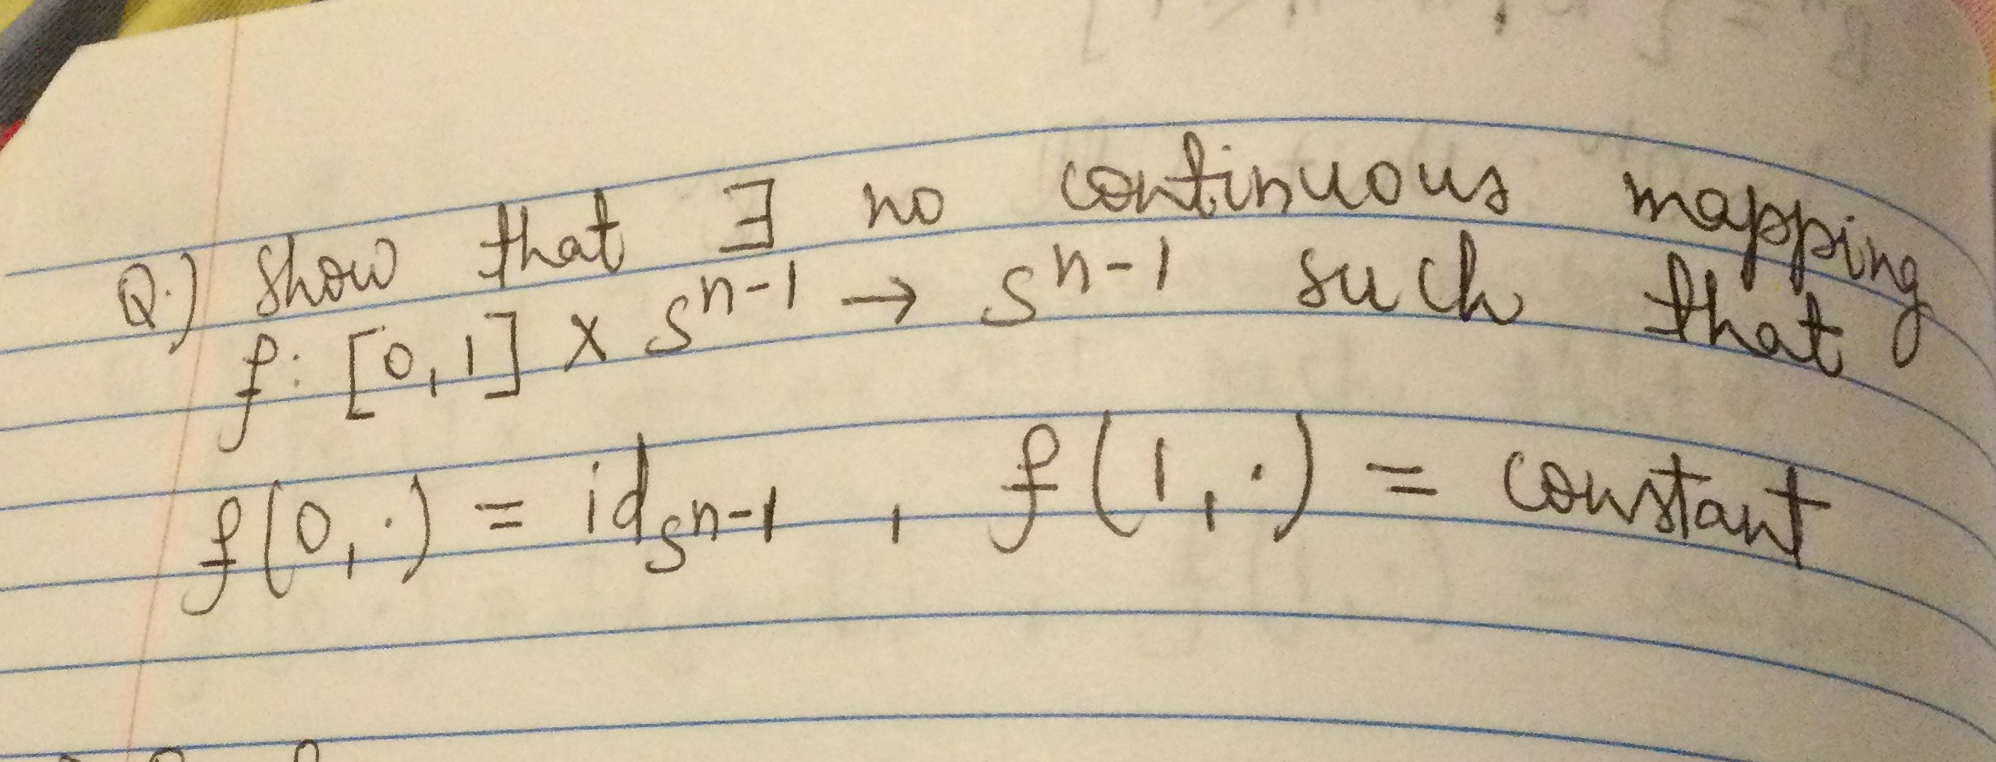 Q.) Show that ∃ no continuous mapping
f: [0,1] × S^{n-1} → S^{n-1} such that
f(0,·) = id_{S^{n-1}} , f(1,·) = constant